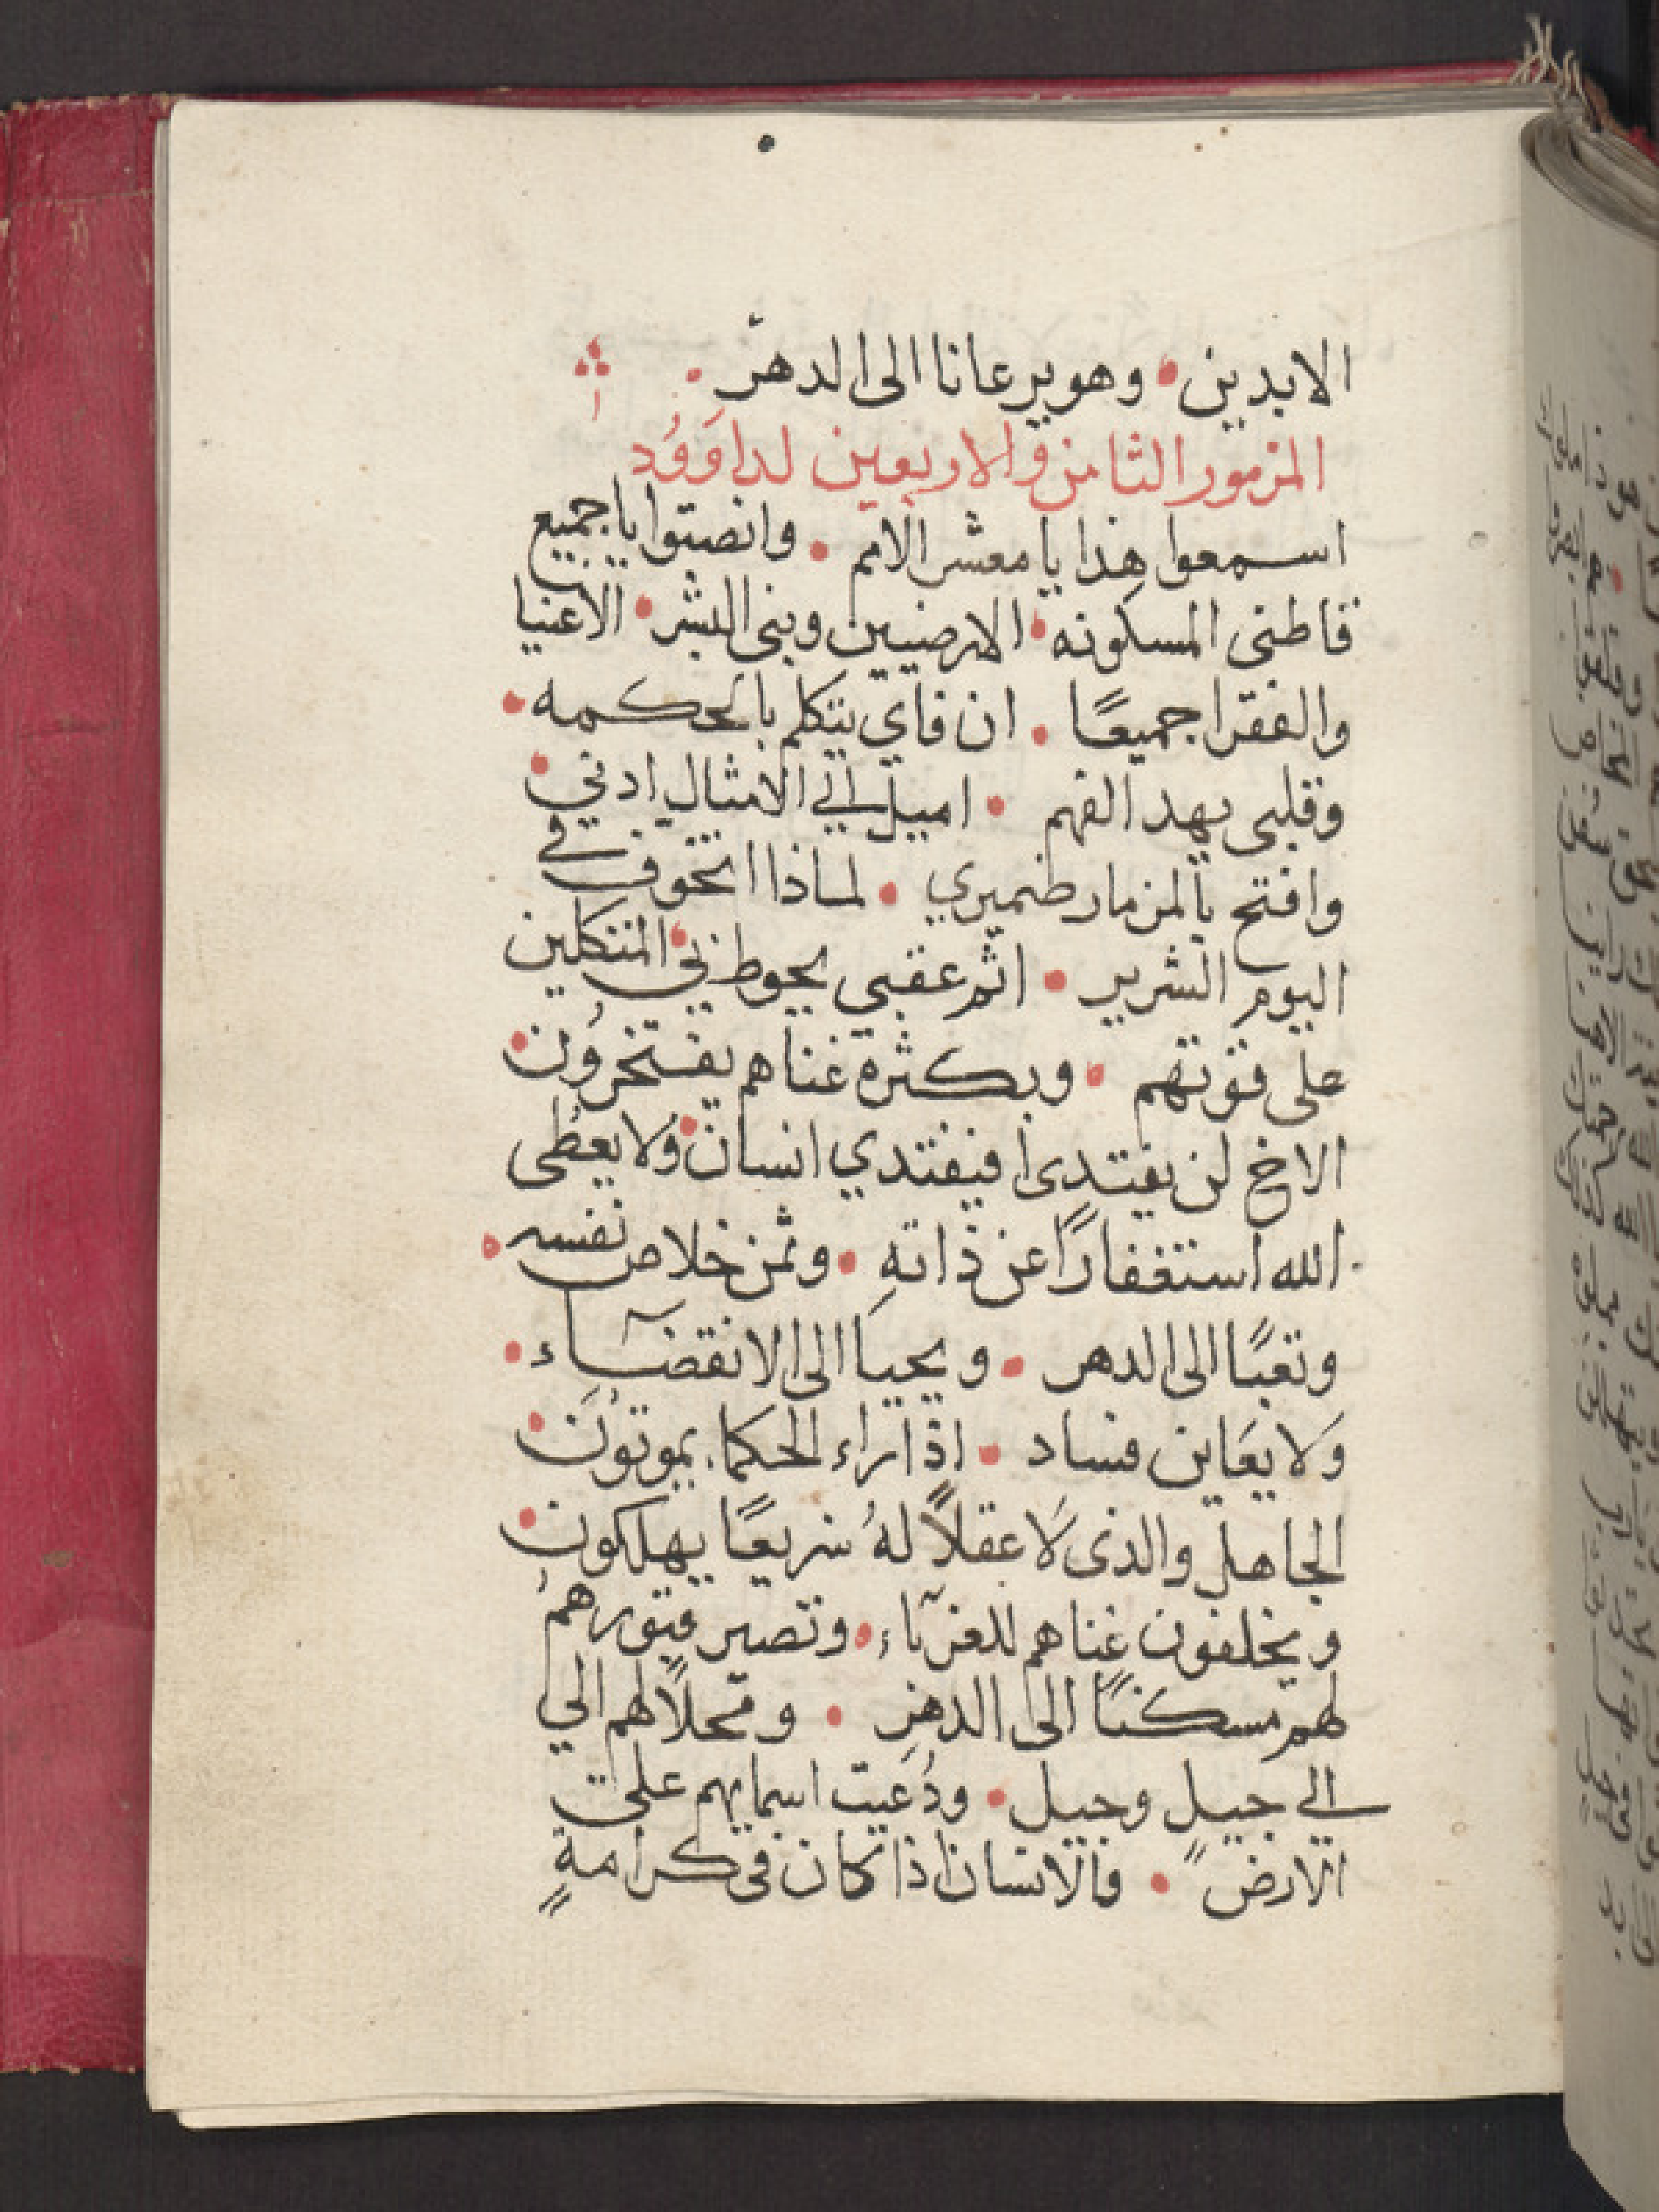 الابدين • وهو يرعانا الى الدهر •
المزمور الثامن والاربعين لداوَوُد
اسمعوا هذا يا معشر الامم • وانصتوا يا جميع
قاطنى المسكونه • الارضيين وبنى البشر • الاغنيا
والفقرا جميعًا • ان فاي يتكلم بالحكمه •
وقلبى يهد الفهم • اميل الي الامثال ادني •
وافتح بالمزمار ضميري • لماذا اتخوف في
اليوم الشرير • اثم عقبى يحوط بي • المتكلين
على قوتهم • وبكثرة غناهم يفتخرُون •
الاخ لن يفتدى افيفتدي انسان • ولا يعطى
الله استغفارًا عن ذاتهِ • وثمن خلاص نفسه •
وتعبًا الى الدهر • ويحيا الى الانقضآء •
وَلا يعَاين فساد • اذا راء الحكماء يموتوُنَ •
الجاهل والذى لَا عقلاً لهُ سريعًا يهلكون •
ويخلفون غناهم للغربآء • وتصير قبورهم
لهم مسكنًا الى الدهرِ • ومحلاً لهم الي
الي جيلٍ وجيل • ودُعيت اسمايهم على
الارضٍ • فالانسان اذا كان فى كرامةٍ